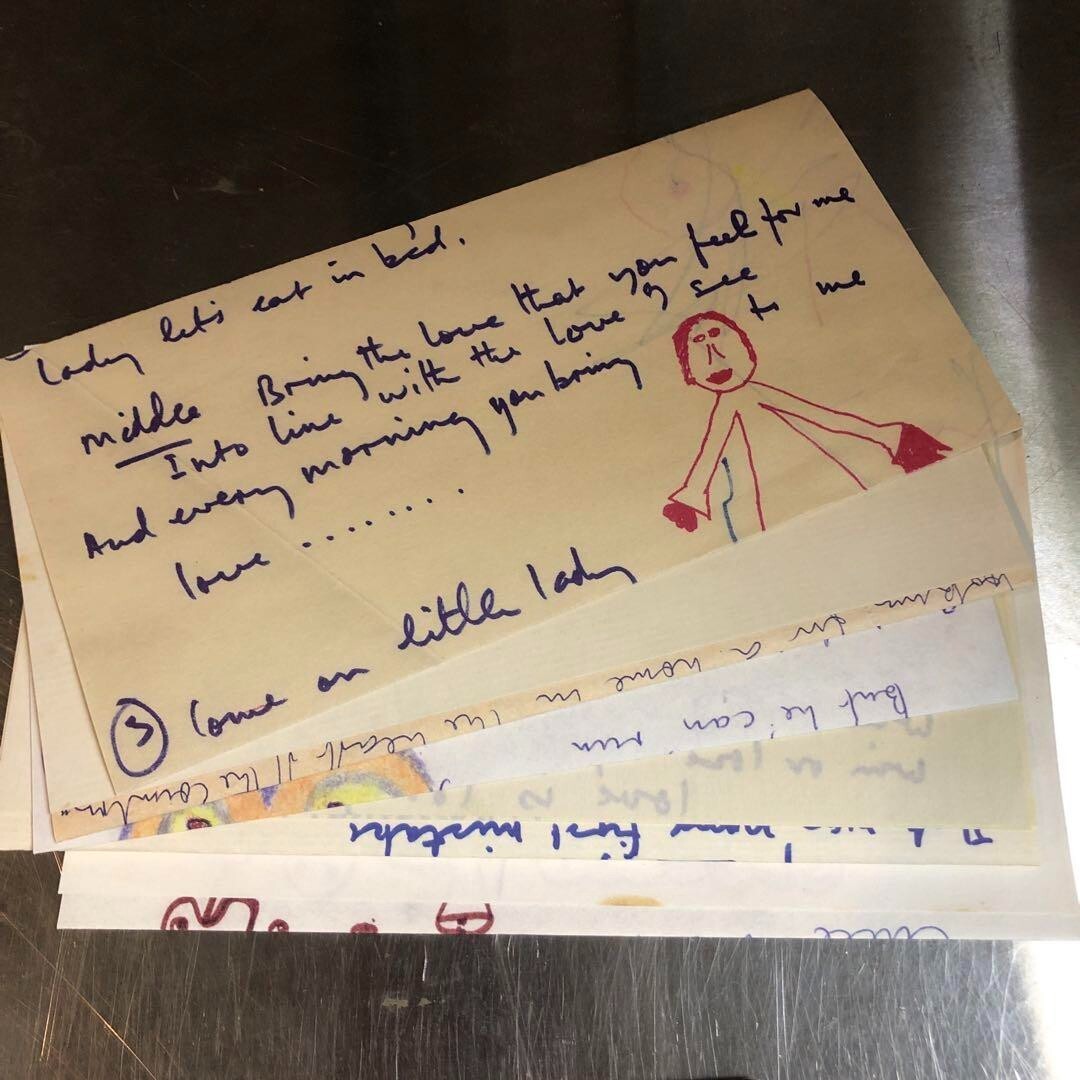 Lady let's eat in bed.
middle Bring the love that you feel for me
Into line with the love I see
And every morning you bring to me
love ......
③ Come on little lady
for a home in the heart of the country
But he can run
win or
love is
your first mistake